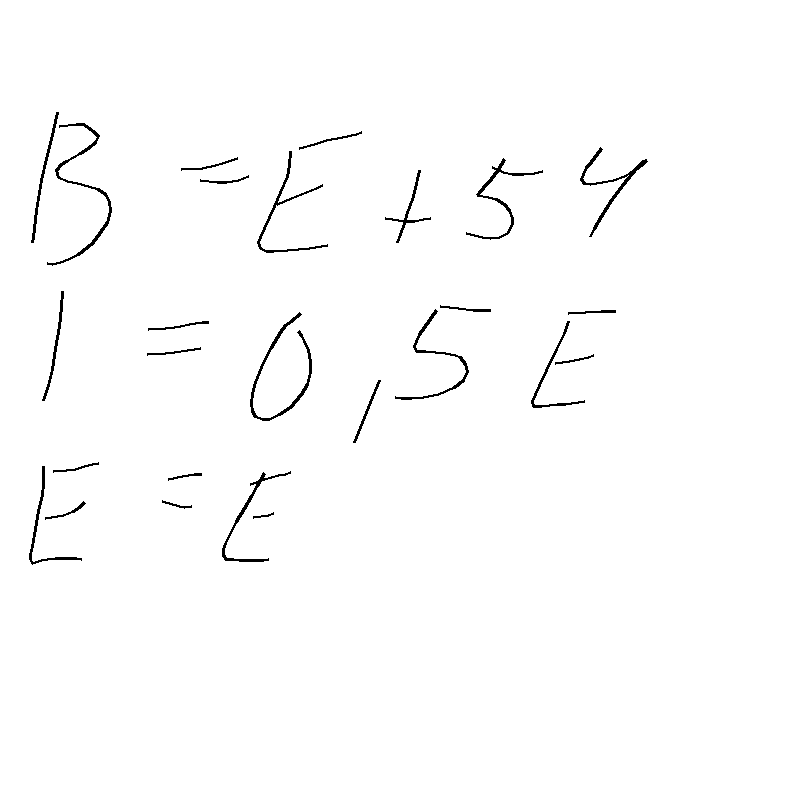 B = E + 54
1 = 0,5 E
E = E